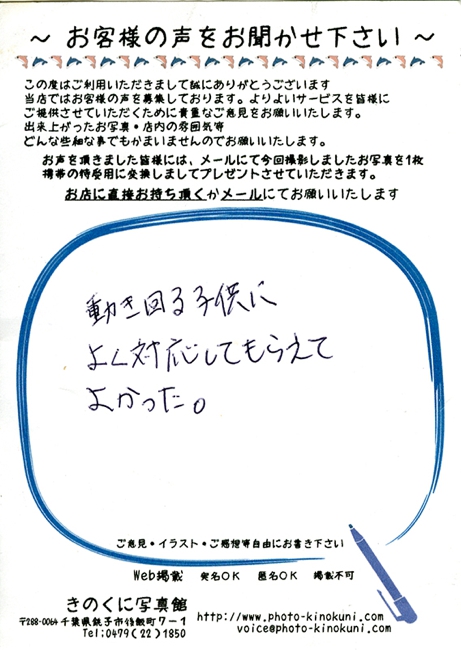 ～ お客様の声をお聞かせ下さい ～
この度はご利用いただきまして誠にありがとうございます
当店ではお客様の声を募集しております。よりよいサービスを皆様に
ご提供させていただくために貴重なご意見をお願いいたします。
出来上がったお写真・店内の雰囲気等
どんな些細な事でもかまいませんのでお願いいたします。
お声を頂きました皆様には、メールにて今回撮影しましたお写真を1枚
携帯の待受用に変換しましてプレゼントさせていただきます。
お店に直接お持ち頂くかメールにてお願いいたします
動き回る子供に
よく対応してもらえて
よかった。
ご意見・イラスト・ご感想等自由にお書き下さい
Web掲載 実名OK 匿名OK 掲載不可
きのくに写真館
〒288-0064 千葉県銚子市待飯町7－1
Tel:0479(22)1850
http://www.photo-kinokuni.com/
voice@photo-kinokuni.com